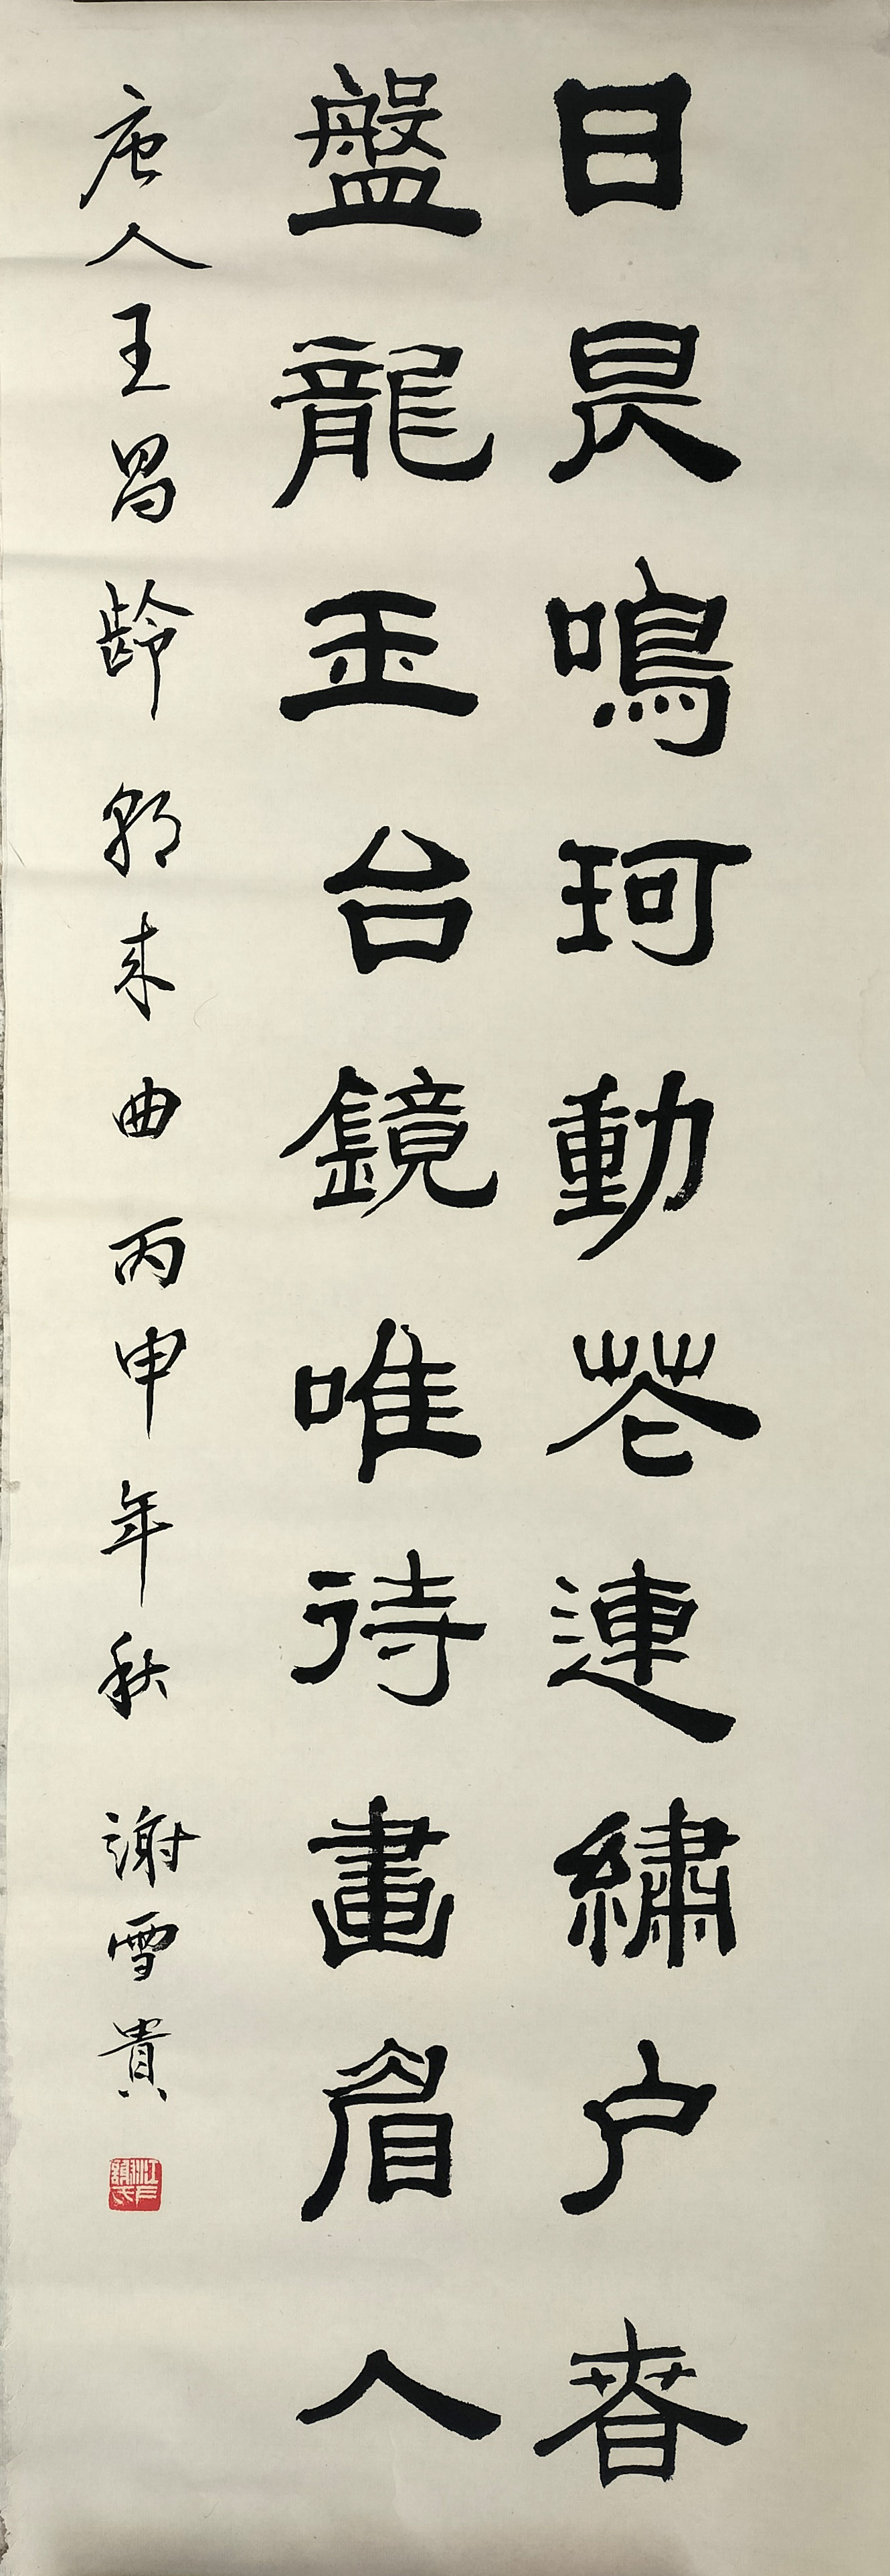 日昃鳴珂動花連繡户春
盤龍玉台鏡唯待畫眉人
唐人王昌龄朝来曲丙申年秋謝雪貴